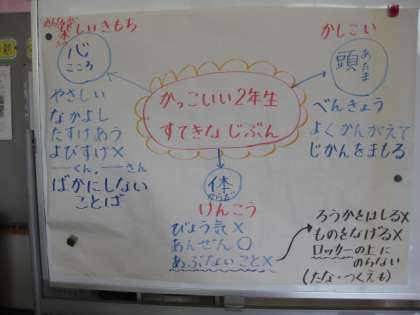 楽しいきもち
心
こころ
やさしい
なかよし
たすけあう
よびすて×
―くん,―さん
ばかにしない
ことば
かっこいい2年生
すてきな じぶん
かしこい
頭
あたま
べんきょう
よくかんがえて
じかんをまもる
体
からだ
けんこう
びょう気×
あんぜん○
あぶないこと×
ろうかをはしる×
ものをなげる×
ロッカーの上に
のらない
(たな・つくえも)